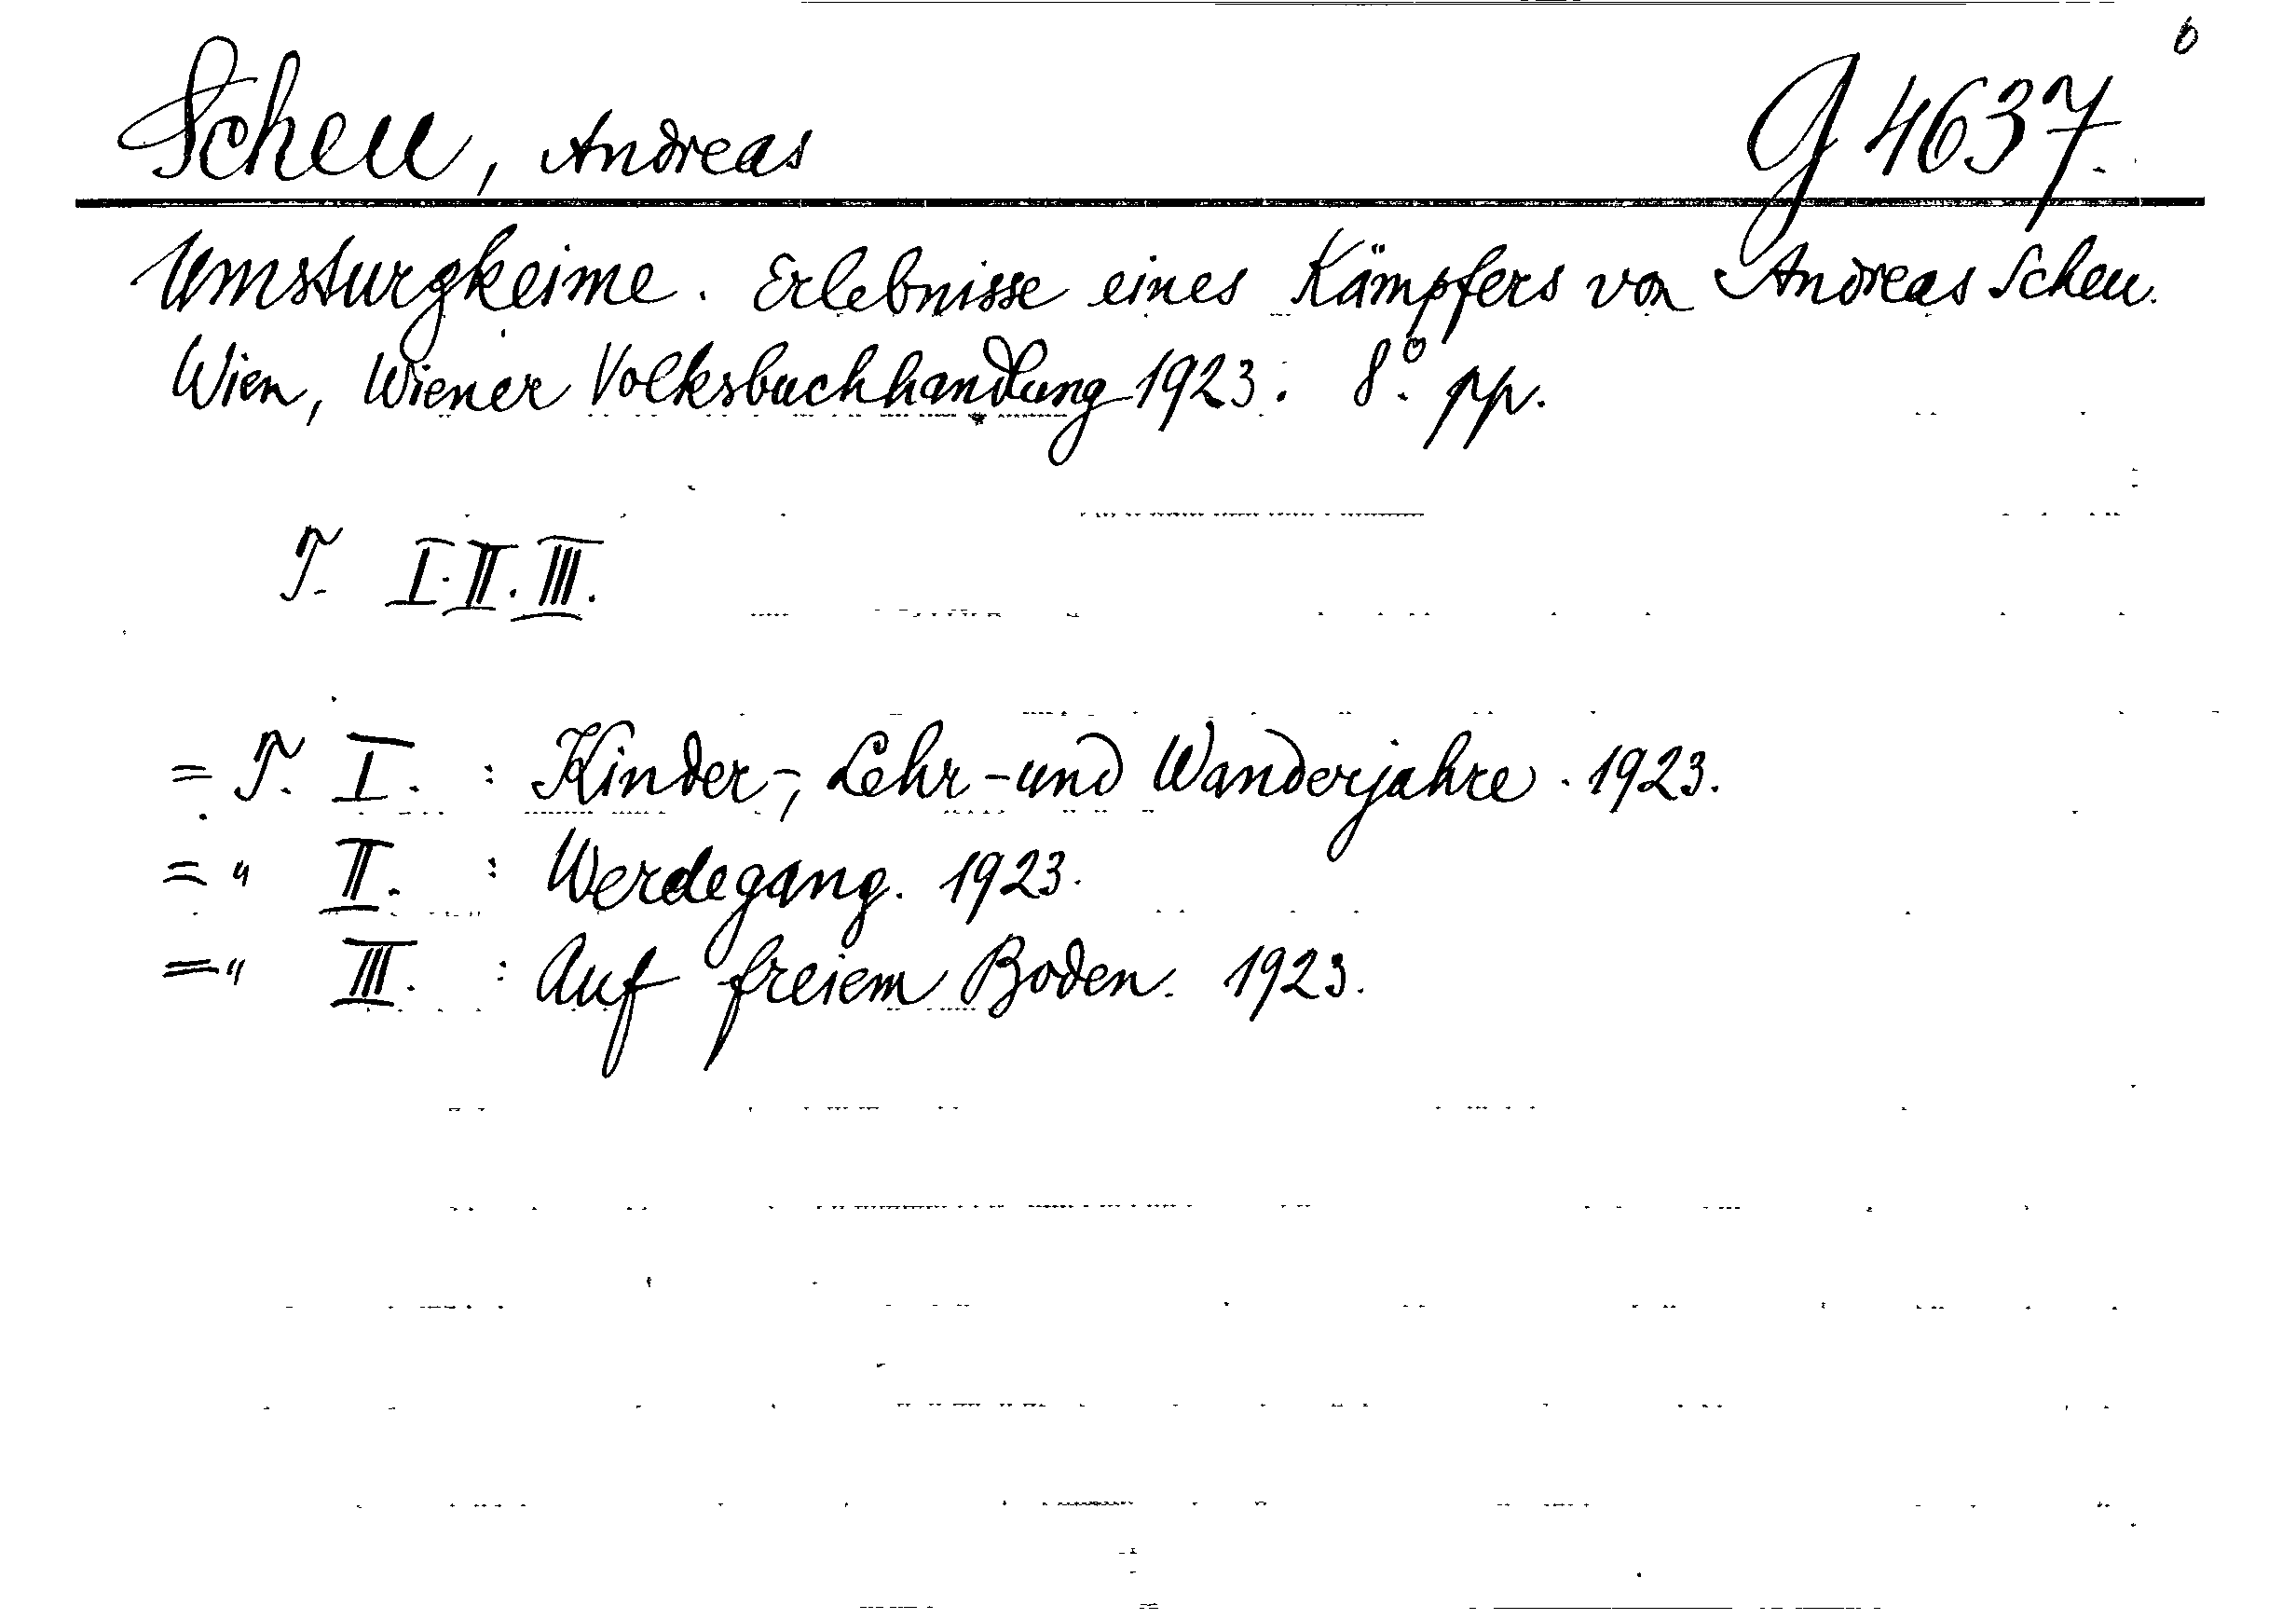 6
Scheu, Andreas G 4637.
Umsturzkeime. Erlebnisse eines Kämpfers von Andreas Scheu.
Wien, Wiener Volksbuchhandlung 1923. 8°. pp.
T. I. II. III.
= T. I. : Kinder-, Lehr- und Wanderjahre. 1923.
= " II. : Werdegang. 1923.
= " III. : Auf freiem Boden. 1923.